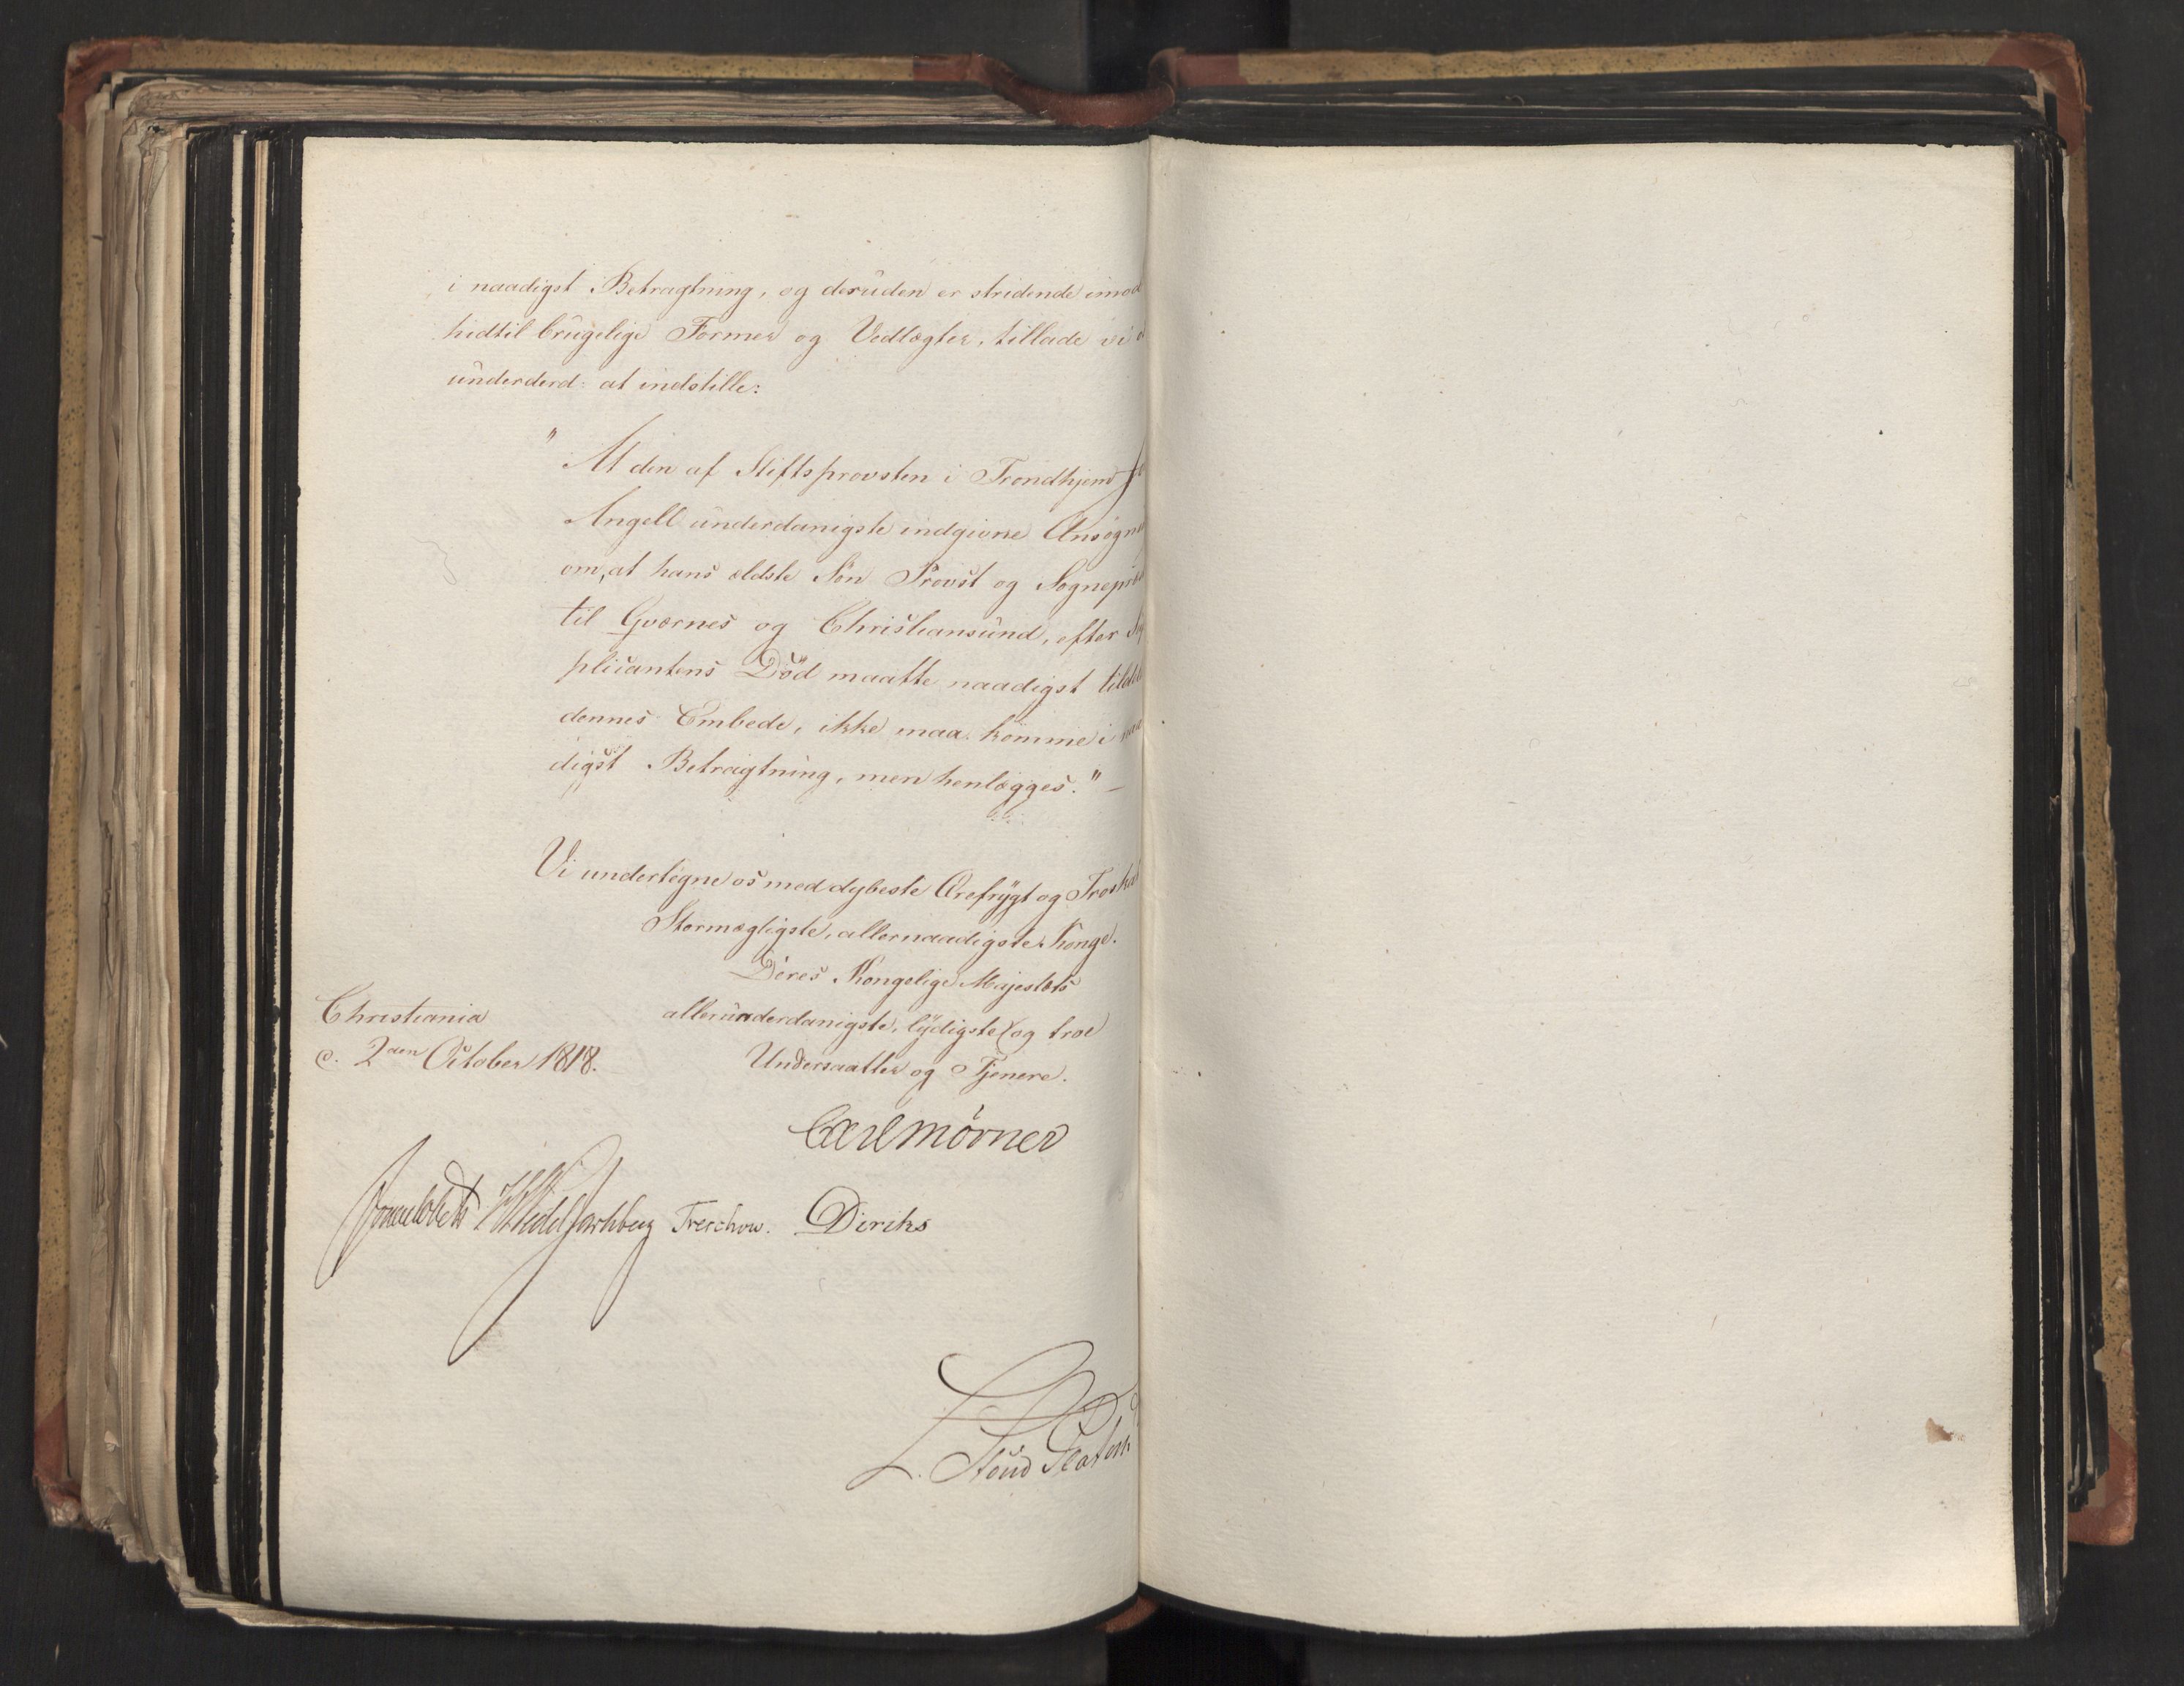 i naadigst Betragtning, og desuden er stridende imod
hidtil brugelige Former og Vedtægter, tillade vi
underd: at indstille:
" At den af Stiftsprovsten i Trondhjem
Angell underdanigste indgivne Ansøgn
om, at hans ældste Søn Provst og Sognepræ
til Qværnes og Christiansund, efter Sup
plicantens Död maatte naadigst tildel
dennes Embede, ikke maa komme i naa
digst Betragtning, men henlægges." —
Vi undertegne os med dybeste Ærefrygt og Troskab
Stormægtigste, allernaadigste Konge.
Deres Kongelige Majestæts
allerunderdanigste, lydigste og troe
Undersaatter og Tjenere.
Christiania
d. 2den October 1818.
Carl Mörner
Sommelhielm HWedel Jarlsberg Treschow. Diriks
L. Stoud Platou